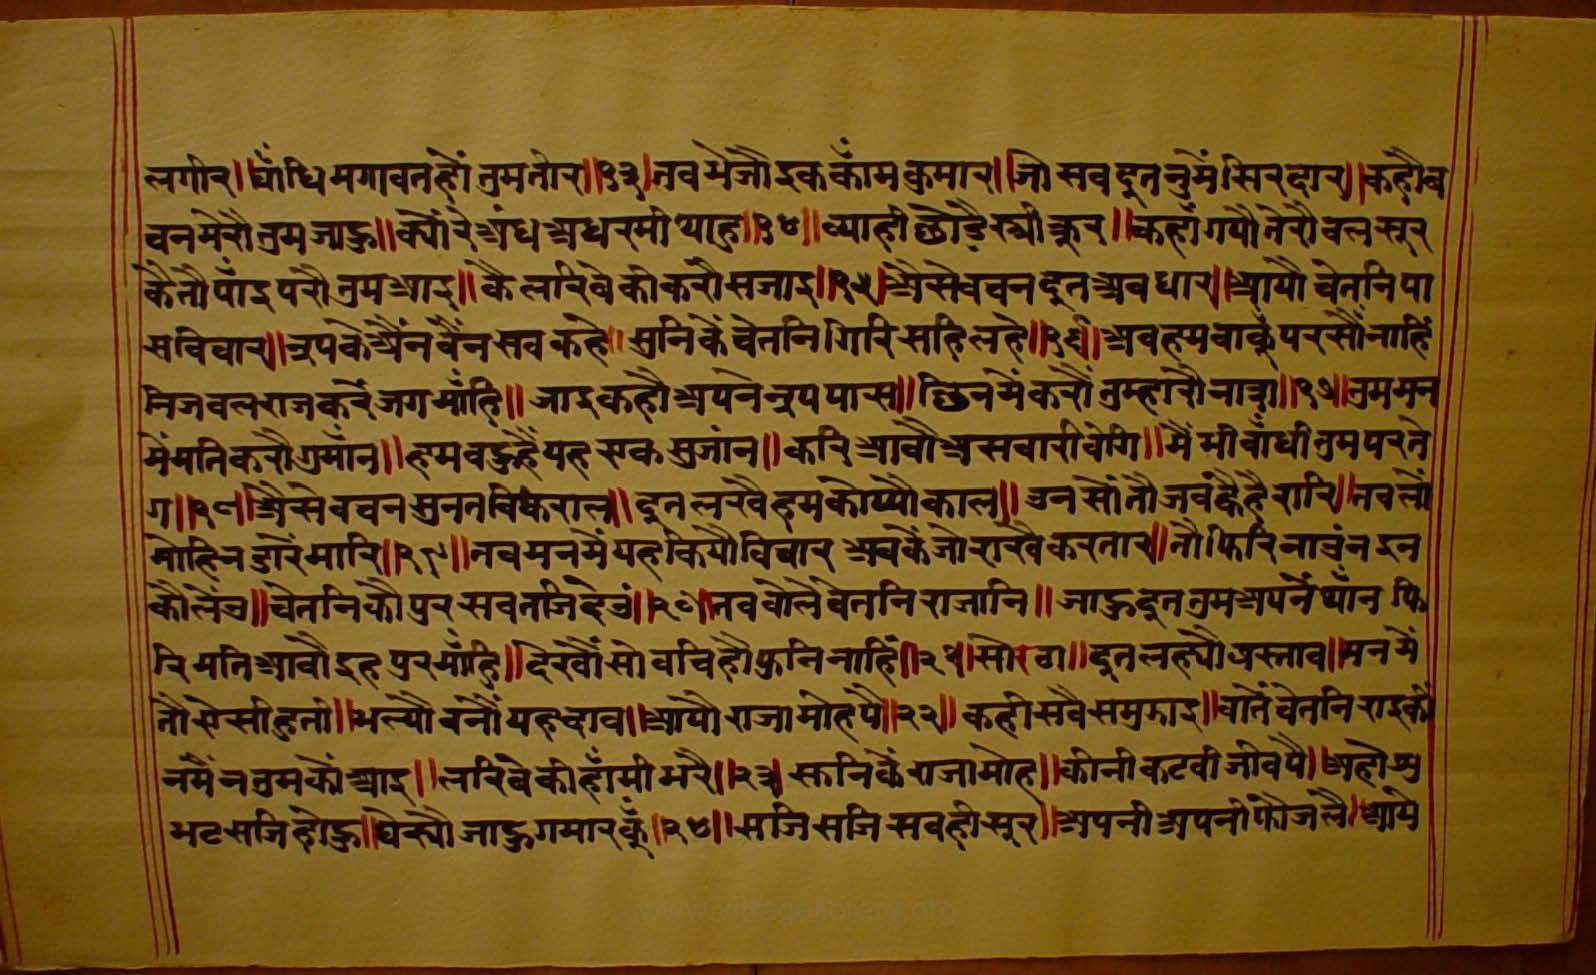 लगीर॥ बाँधि मगावत हों तुम तीर॥१३॥ तव मेजौ इक काँम कुमार॥ जो सव दूतनु में सिरदार॥ कहौ व
चन मेरौ तुम जाहु॥ क्यों रे अंध अधरमी थाहु॥१४॥ व्याही छोडै स्त्री कूर॥ कहाँ गयौ तेरौ वल सूर
कै तौ पाँइ परौ तुम आइ॥ कै लरिवे की करौ सजाइ॥१५॥ ऐसे वचन दूत अवधार॥ आयौ चेतनि पा
स विचार॥ नृप के ऐंन वैंन सव कहे॥ सुनि कें चेतनि गिरि सहि लहे॥१६॥ अव हम वाकूं परसौं नाहिं
निज वल राज करें जग माँहि॥ जाइ कहौ अपने नृप पास॥ छिन में करौं तुम्हारौ नाश॥१७॥ तुम मन
में मति करौ गुमाँन॥ हम वहु हैं यह एक सुजांन॥ करि आवौ असवारी वेगि॥ मैं भी बाँधी तुम पर ते
ग॥१८॥ ऐसे वचन सुनत विकराल॥ दूत लखै हम कोप्यौ काल॥ उन सों तौ जव ह्वै है रारि॥ तव लों
मोहि न डारें मारि॥१९॥ तव मन में यह कियौ विचार अव कें जो राखै करतार॥ तौ फिरि नाउं न इन
कौ लेंउ॥ चेतनि कौ पुर सव तजि देउं॥२०॥ तव वोले चेतनि राजानि॥ जाहु दूत तुम अपनें थाँन फि
रि मति आवौ इह पुर माँहि॥ देखौं सो वचिहौ फुनि नाहिं॥२१॥ सोरठा॥ दूत लह्यौ प्रस्ताव॥ मन में
तौ ऐसी हुती॥ भल्यौ वनौं यह दाव॥ आयौ राजा मोह पै॥२२॥ कही सवै समुझाइ॥ वातें चेतनि राइ की
नमें न तुम कौं आइ॥ लरिवे की हाँमी भरै॥२३॥ सुनि कें राजा मोह॥ कीनी कटवी जीव पै॥ अहो सु
भट सजि होहु॥ घेस्यौ जाहु गमार कूँ॥२४॥ सजि सजि सवही सूर॥ अपनी अपनी फौज लै॥ आये